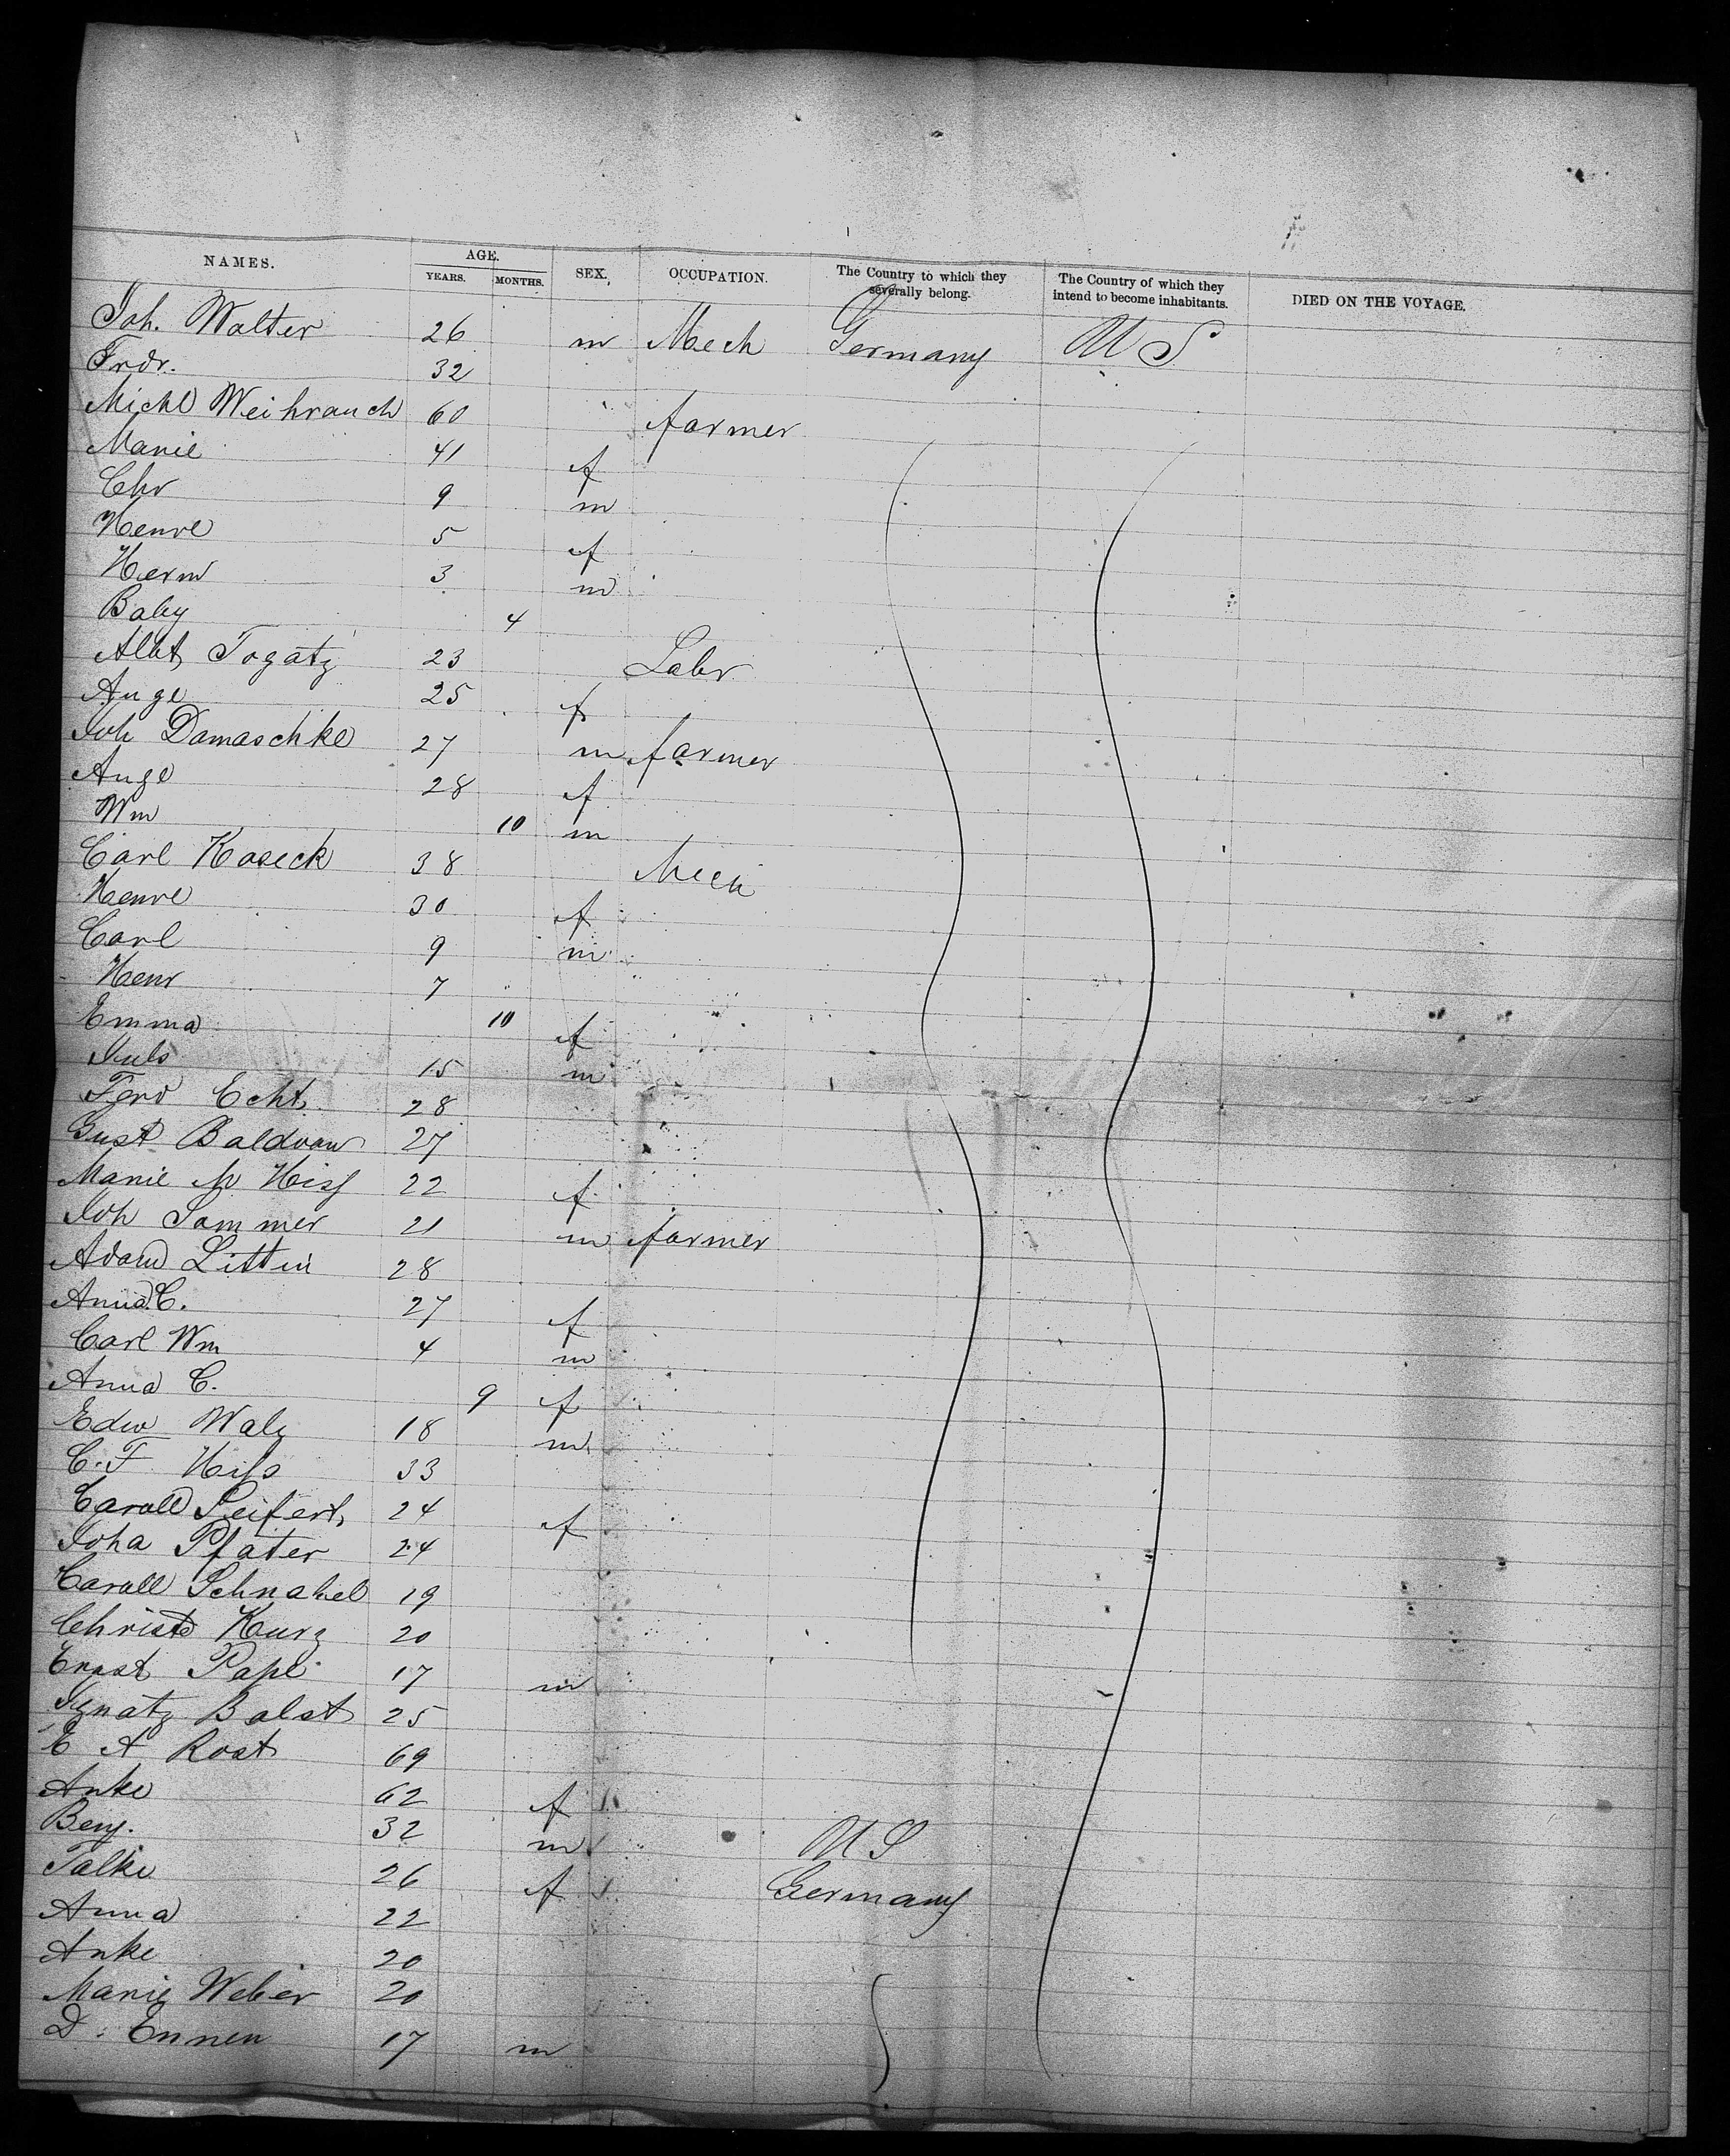 NAMES. AGE. YEARS. MONTHS. SEX. OCCUPATION. The Country to which they severally belong. The Country of which they intend to become inhabitants. DIED ON THE VOYAGE.
Joh. Walter 26 m Mech Germany U S
Frdr. 32
Michl Weihrauch 60 farmer
Marie 41 f
Chr 9 m
Henre 5 f
Herm 3 m
Baby 4
Albt Togatz 23 Labr
Auge 25 f
Joh Damaschke 27 m farmer
Auge 28 f
Wm 10 m
Carl Koseck 38 Mech
Henre 30 f
Carl 9 m
Henr 7
Emma 10 f
Juls 15 m
Ferd Echt 28
Gust 27
Marie M 22 f
Joh Sommer 21 m farmer
Adam Littin 28
Anna C. 27 f
Carl Wm 4 m
Anna C. 9 f
Edw Walz 18 m
C. F. Hiss 33
Caroll Seifert 24 f
Joha Pfater 24
Caroll Schnabel 19
Christe Kurz 20
Ernst Pape 17 m
Ignatz Balst 25
E A Rost 69
Anke 62 f
Benj. 32 m U S
Talke 26 f Germany
Anna 22
Anke 20
Marie Weber 20
D. Ennen 17 m